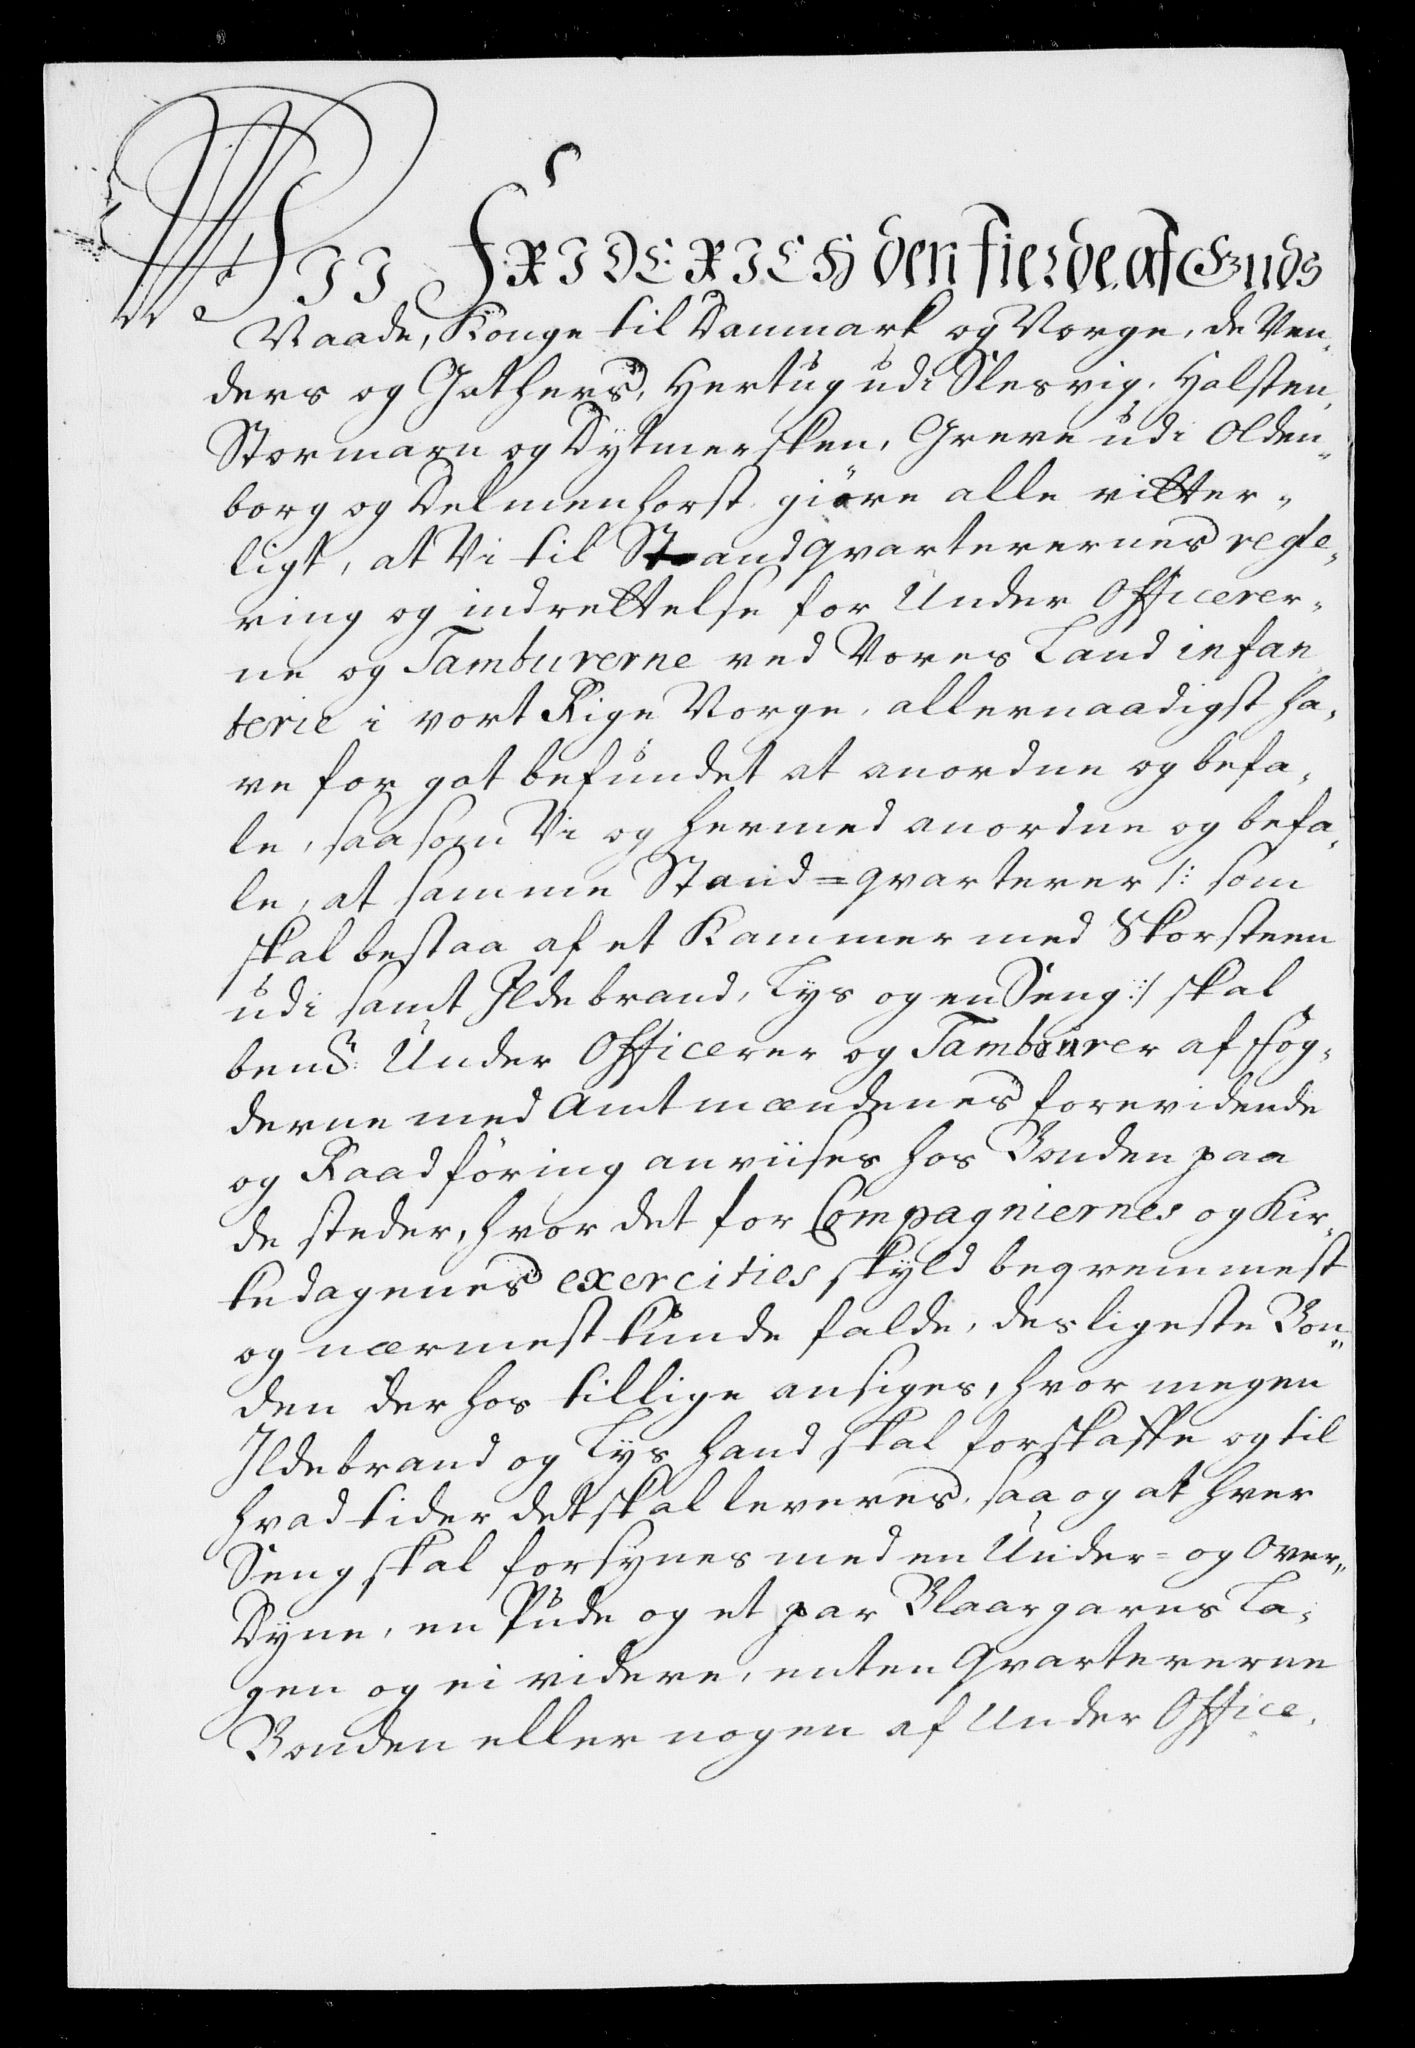 Wii FRIDERICH den fierde af Guds
Naade, Konge til Danmark og Norge, de Ven¬
ders og Gothers, Hertug udi Slesvig, Holsten,
Stormarn og Dytmersken, Greve udi Olden¬
borg og Delmenhorst, giöre alle vitter¬
ligt, at Vi til Standqvarterernes regle¬
ring og indrettelse for Under Officerer¬
ne og Tamburerne ved Vores Land infan
terie i vort Rige Norge, allernaadigst ha¬
ve for got befundet at anordne og befa¬
le, saasom Vi og hermed anordne og befa¬
le, at samme Stand=qvarterer /: som
skal bestaa af et Kammer med Skorsteen
udi samt Ildebrand, Lys og en Seng :/ skal
bem.te Under Officerer og Tambourer af Fog¬
derne med Amtmændenes forevidende
og Raadföring anviises hos Bonden paa
de steder, hvor det for Compagniernes og Kir¬
kedagenes exercities skyld beqvemmest
og nærmest kunde falde, desligeste Bon¬
den der hos tillige ansiges, hvor megen
Ildebrand og Lys hand skal forskaffe og til
hvad tider det skal leveres, saa og at hver
Seng skal forsynes med en Under= og Over¬
Dyne, en Pude og et par Blaargarns La¬
gen og ei videre, enten Qvartererne
Bonden eller nogen af Under Office¬